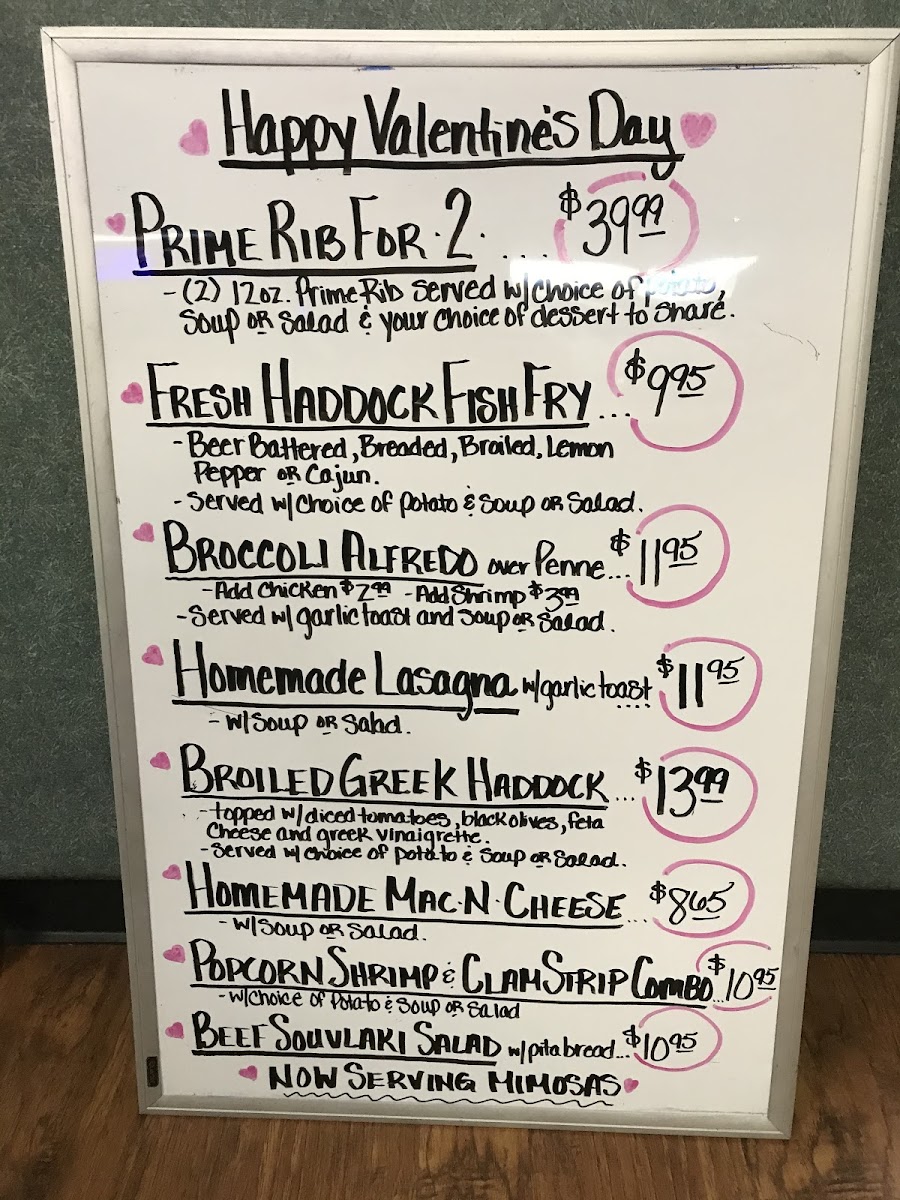 Happy Valentine's Day
PRIME RIB FOR 2 .... $39.99
- (2) 12oz. Prime Rib served w/choice of potato,
Soup OR Salad & your choice of dessert to share.
FRESH HADDOCK FISH FRY ... $9.95
- Beer Battered, Breaded, Broiled, Lemon
Pepper OR Cajun.
- Served w/choice of potato & Soup OR Salad.
BROCCOLI ALFREDO over Penne... $11.95
- Add Chicken $2.99 - Add Shrimp $3.99
- Served w/ garlic toast and soup OR Salad.
Homemade Lasagna w/garlic toast .... $11.95
- w/Soup OR Salad.
BROILED GREEK HADDOCK ... $13.99
- topped w/diced tomatoes, black olives, feta
Cheese and greek vinaigrette.
- Served w/ choice of potato & Soup OR Salad.
HOMEMADE MAC·N·CHEESE ... $8.65
- w/Soup OR Salad.
POPCORN SHRIMP & CLAM STRIP COMBO ... $10.95
- w/choice of Potato & Soup OR Salad
BEEF SOUVLAKI SALAD w/pita bread... $10.95
NOW SERVING MIMOSAS